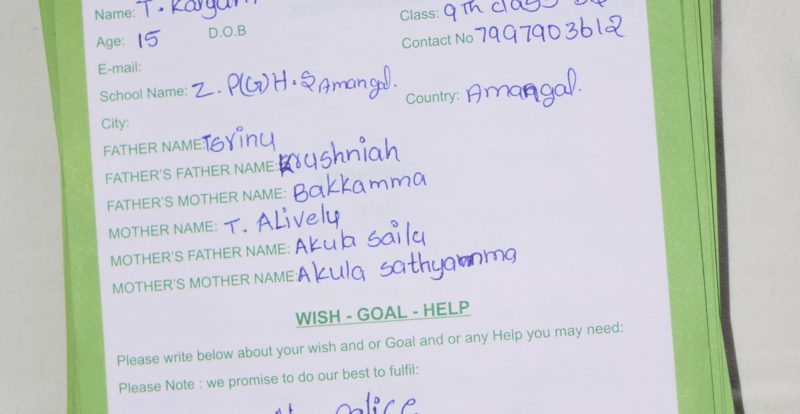 Name: T. Kalyani
Class: 9th class
Age: 15
D.O.B
Contact No 7997903612
E-mail:
School Name: Z. P(G)H.S Amangal.
Country: Amangal.
City:
FATHER NAME: T Srinu
FATHER'S FATHER NAME: Krushniah
FATHER'S MOTHER NAME: Bakkamma
MOTHER NAME: T. ALively
MOTHER'S FATHER NAME: Akula Sailu
MOTHER'S MOTHER NAME: Akula sathyamma
WISH - GOAL - HELP
Please write below about your wish and or Goal and or any Help you may need:
Please Note : we promise to do our best to fulfil:
police